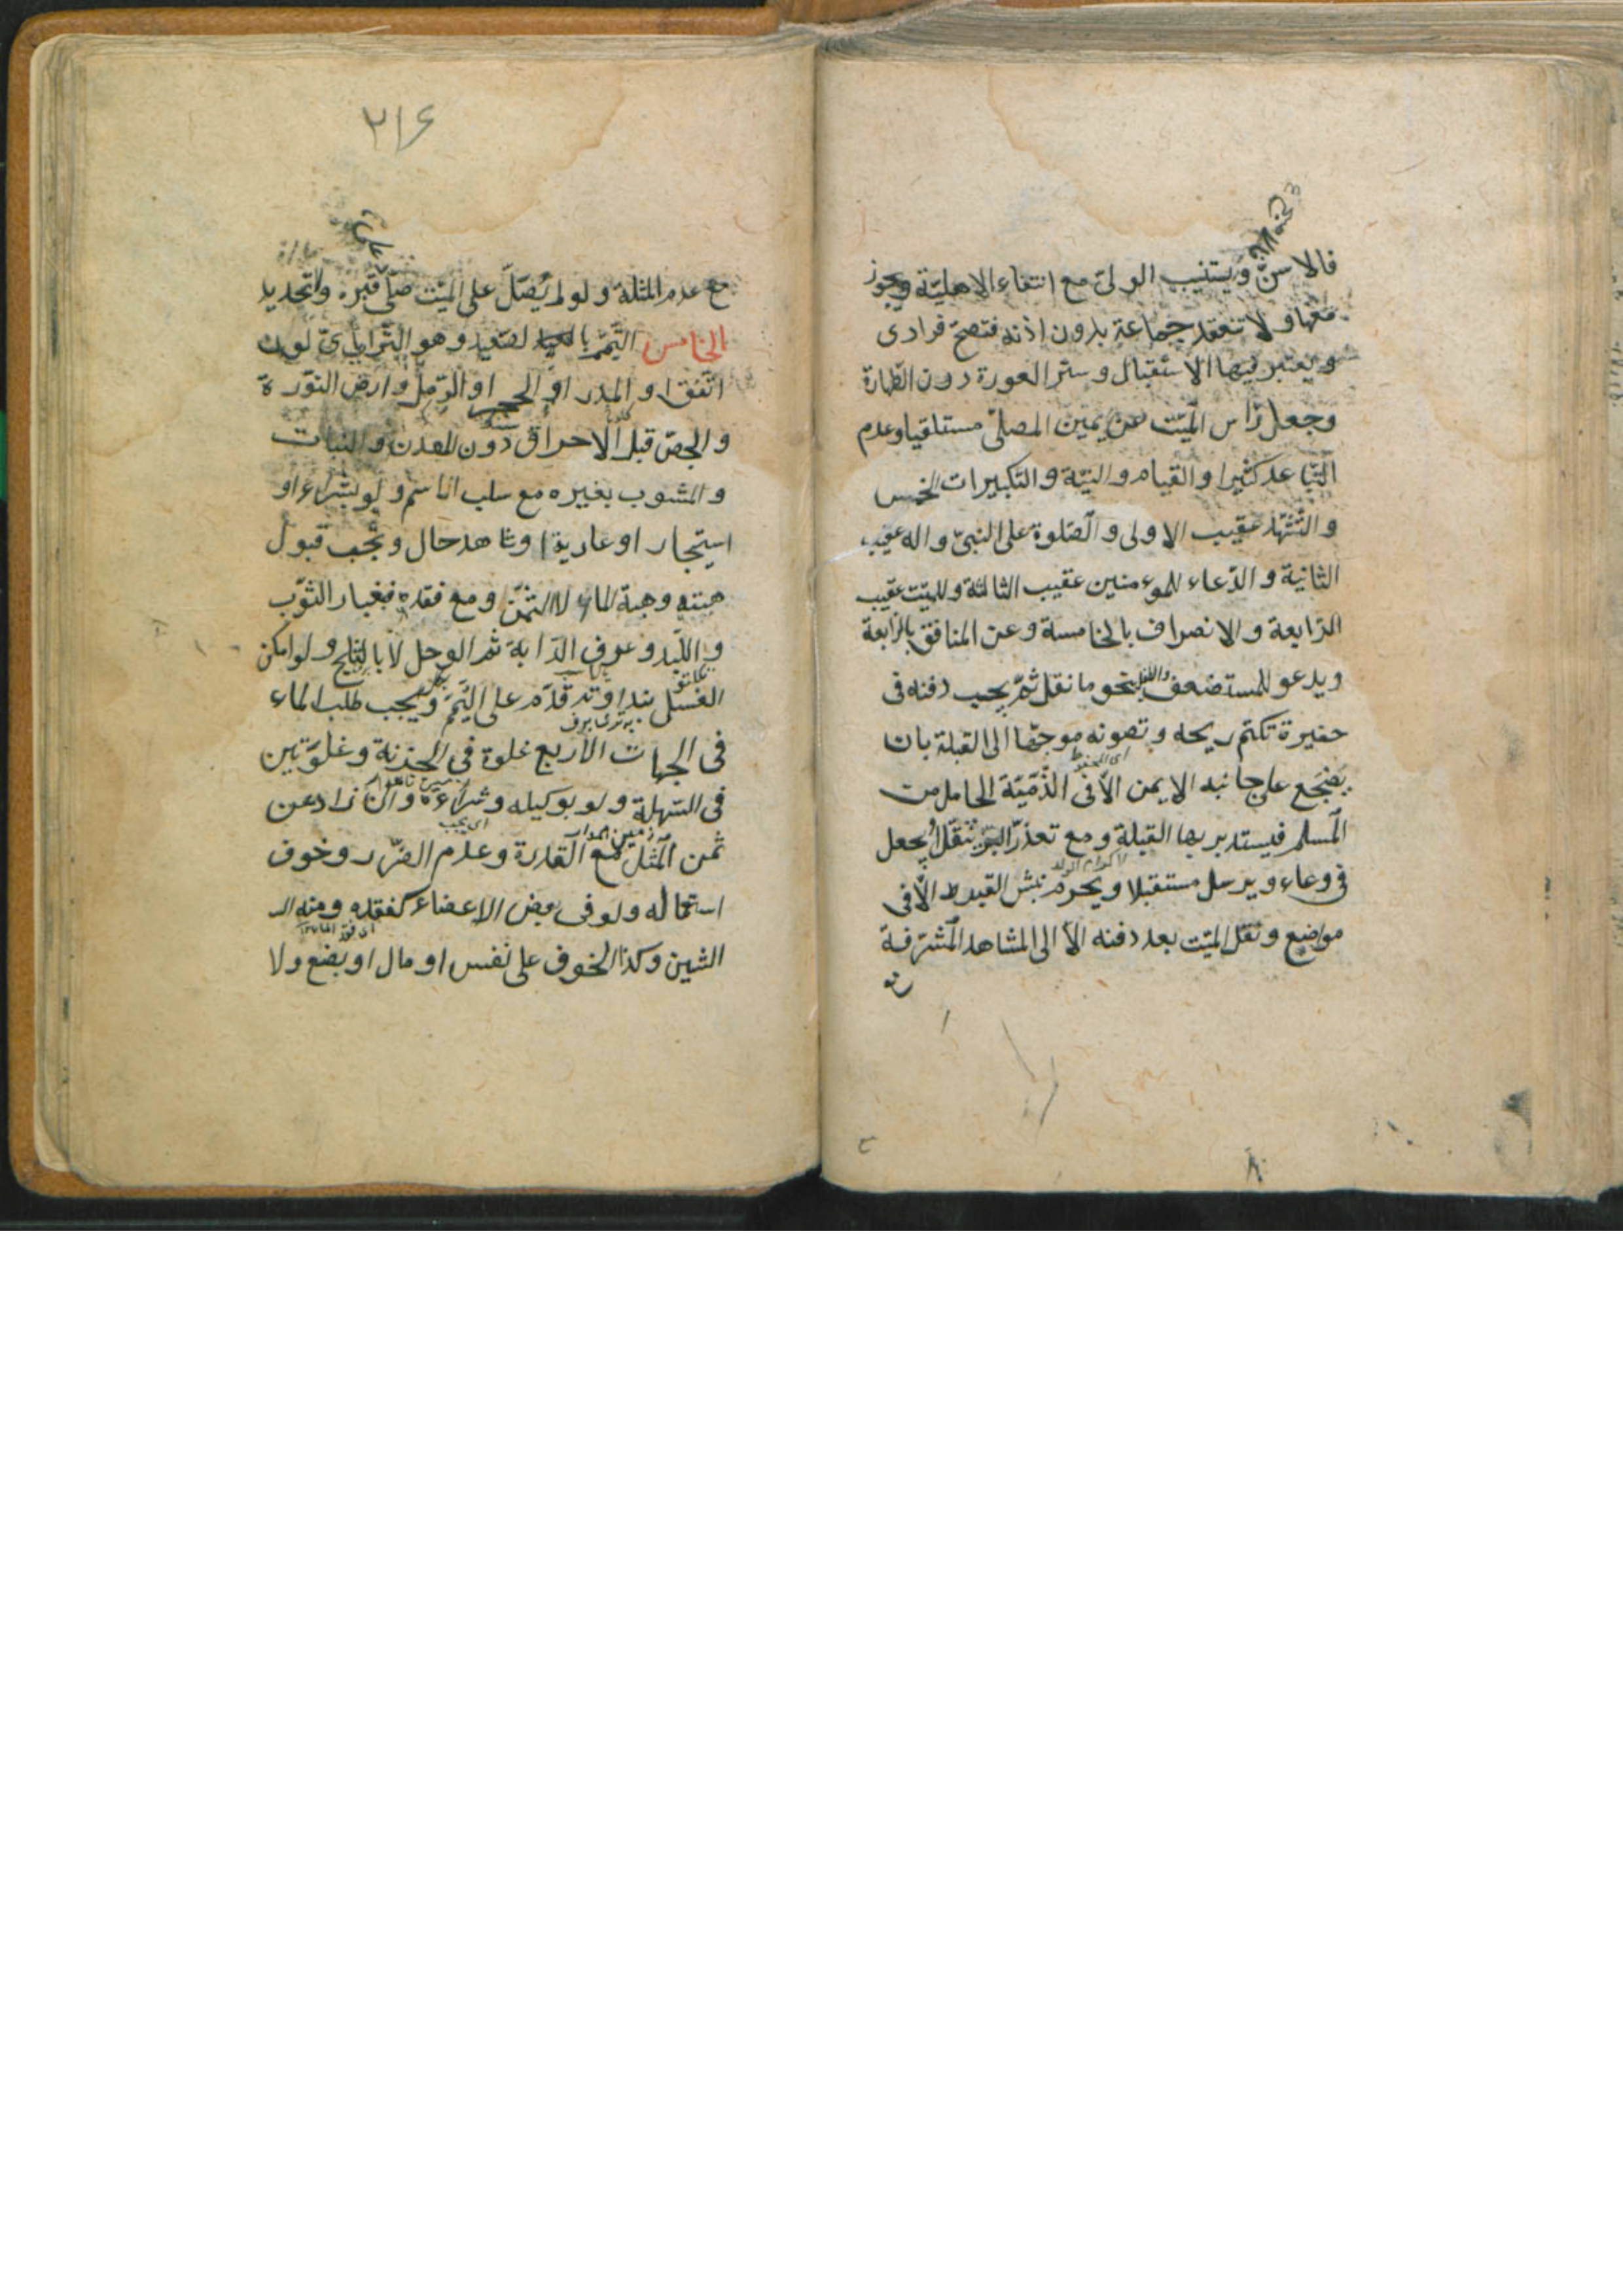 فالاسنّ ويستنيب الولىّ مع انتفاء الاهليّة ويجوز
معها ولا تنعقد جماعة بدون اذنه فتصحّ فرادى
ويعتبر فيها الاستقبال وستر العورة دون الطّهارة
وجعل رأس الميّت عن يمين المصلّى مستلقيا وعدم
التّباعد كثيرا والقيام والنيّة والتكبيرات الخمس
والتّشهّد عقيب الاولى والصّلوة على النبىّ واله عقيب
الثانية والدّعاء للموءمنين عقيب الثالثة وللميّت عقيب
الرّابعة والانصراف بالخامسة وعن المنافق بالرّابعة
ويدعو للمستضعف والطفل بنحو ما نقل ثمّ يجب دفنه فى
حفيرة تكتم ريحه وتصونه موجّها الى القبلة بان
يضجع على جانبه الايمن الّا فى الذّميّة الحامل من
المسلم فيستدبر بها القبلة ومع تعذّر البرّ يثقّل او يجعل
فى وعاء ويرسل مستقبلا ويحرم نبش القبور الّا فى
مواضع ونقل الميّت بعد دفنه الّا الى المشاهد المشرّفة
٢١۶
مع عدم المثلة ولو لم يُصَلَّ على الميّت صلّى على قبره ولا تحديد
الخامس التّيمّم بالصّعيد وهو التّراب باىّ لون
اتّفق او المدر او الحجر او الرّمل وارض النّورة
والجصّ قبل الاحراق دون المعدن والنبات
والمشوب بغيره مع سلب الاسم ولو بشراء او
استيجار او عارية او شاهد حال ويجب قبول
هبته وهبة الماء لا الثمن ومع فقده فغبار الثّوب
واللّبد وعرف الدّابة ثمّ الوحل لا بالثلج ولو امكن
الغسل بنداوته قدّم على التّيمّم ويجب طلب الماء
فى الجهات الاربع غلوة فى الحزنة وغلوتين
فى السّهلة ولو بوكيله وشراءه وان زاد عن
ثمن المثل مع القدرة وعدم الضّرر وخوف
استعماله ولو فى بعض الاعضاء كفقده ومنه
الشين وكذا الخوف على نفس او مال او بضع ولا